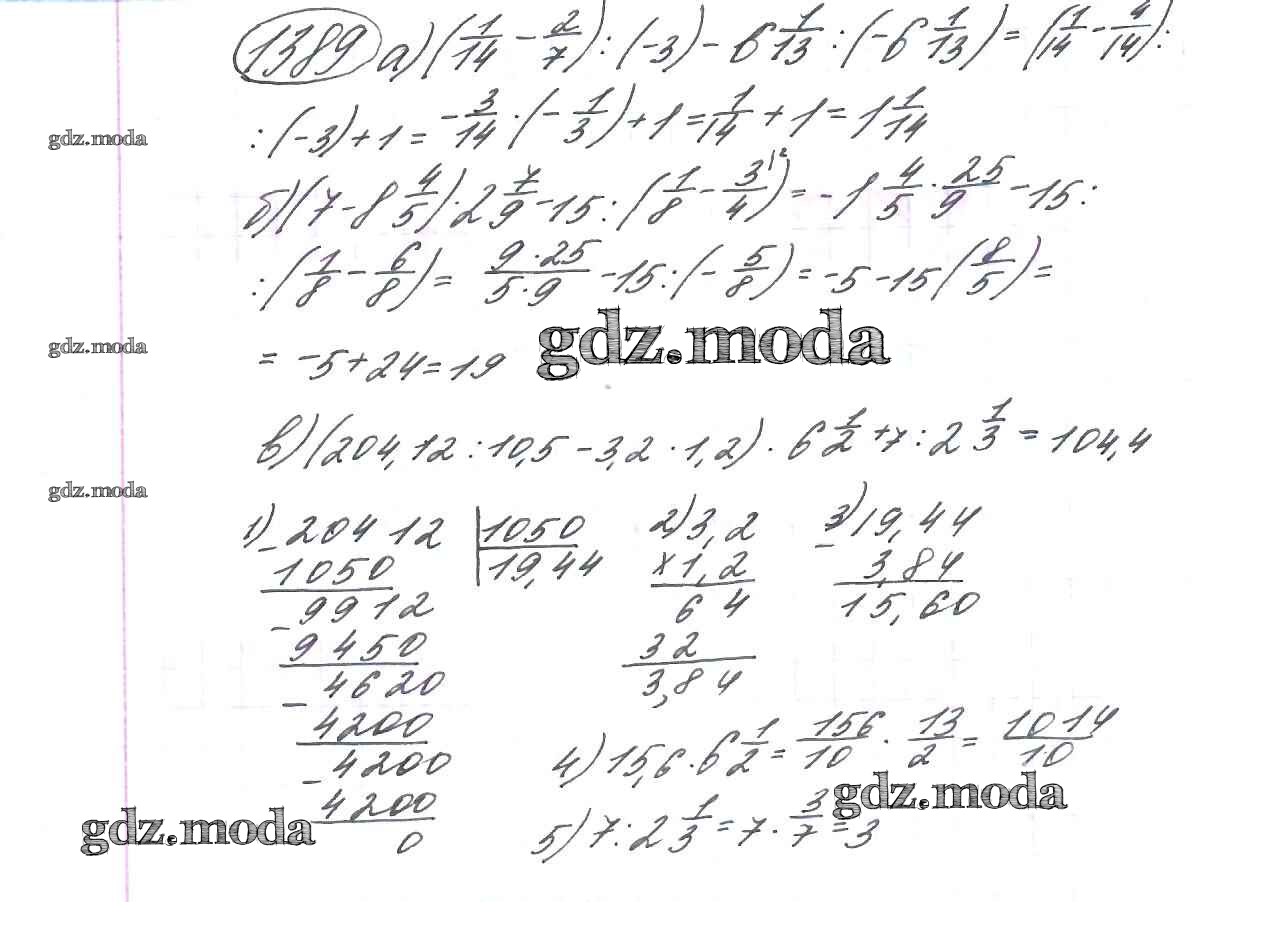 1389 а) (1/14 - 2/7) : (-3) - 6 1/13 : (-6 1/13) = (1/14 - 4/14) :
: (-3) + 1 = -3/14 · (-1/3) + 1 = 1/14 + 1 = 1 1/14
gdz.moda
б) (7 - 8 4/5) · 2 7/9 - 15 : (1/8 - 3/4 |²) = -1 4/5 · 25/9 - 15 :
: (1/8 - 6/8) = 9·25/5·9 - 15 : (-5/8) = -5 - 15 (8/5) =
gdz.moda
= -5 + 24 = 19
gdz.moda
в) (204,12 : 10,5 - 3,2 · 1,2) · 6 1/2 + 7 : 2 1/3 = 104,4
gdz.moda
1) - 20412 | 1050
1050 | 19,44
- 9912
9450
- 4620
4200
- 4200
4200
0
2) 3,2
× 1,2
64
32
3,84
3) - 19,44
3,84
15,60
4) 15,6 · 6 1/2 = 156/10 · 13/2 = 1014/10
gdz.moda
5) 7 : 2 1/3 = 7 · 3/7 = 3
gdz.moda